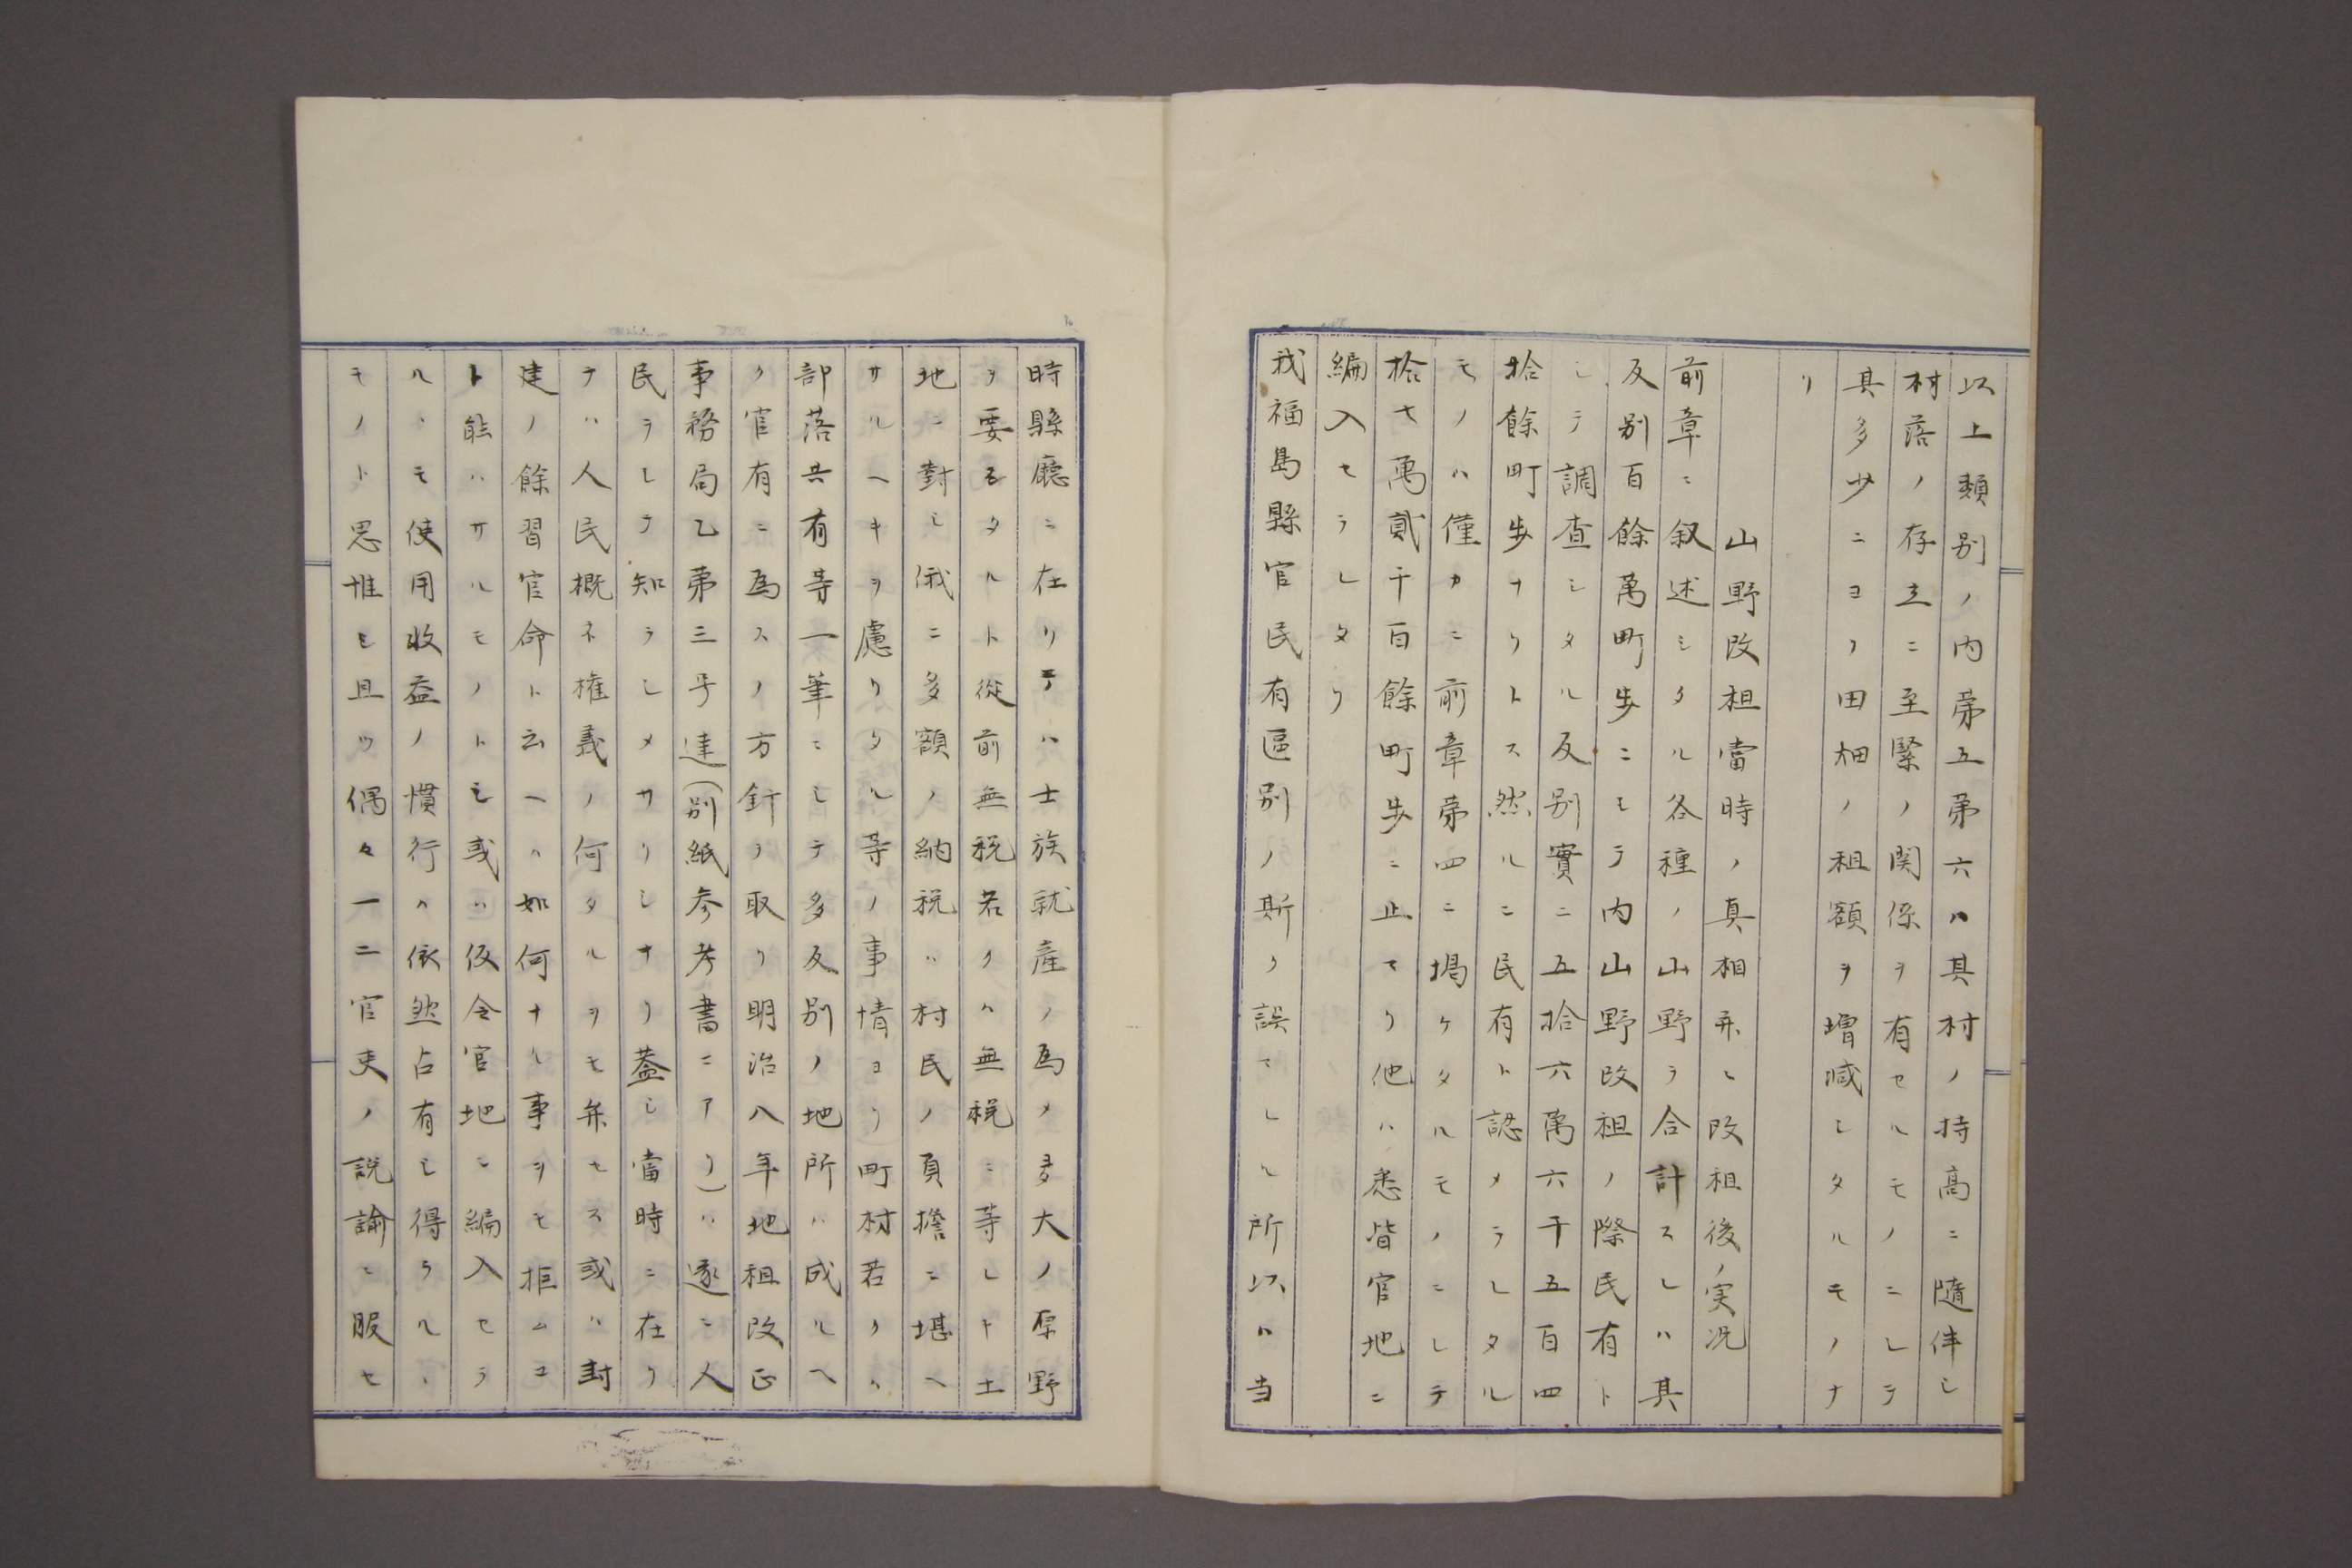 以上類別ノ内第五第六ハ其村ノ持高ニ随伴シ
村落ノ存立ニ至緊ノ関係ヲ有セルモノニシテ
其多少ニヨリ田畑ノ租額ヲ増減シタルモノナ
リ
山野改租當時ノ真相并ニ改租後ノ実况
前章ニ叙述シタル各種ノ山野ヲ合計スレハ其
反別百餘萬町歩ニシテ内山野改租ノ際民有ト
シテ調査シタル反別實ニ五拾六萬六千五百四
拾餘町歩ナリトス然ルニ民有ト認メラレタル
モノハ僅カニ前章第四ニ掲ケタルモノニシテ
拾七萬貳千百餘町歩ニ止マリ他ハ悉皆官地ニ
編入セラレタリ
我福島縣官民有區別ノ斯ク誤マレル所以ハ当
時縣廳ニ在リテハ士族就産ノ為メ多大ノ原野
ヲ要スタルト從前無税若クハ無税ニ等シキ土
地ニ對シ俄ニ多額ノ納税ハ村民ノ負擔ニ堪ヘ
サルヘキヲ慮リタル等ノ事情ヨリ町村若クハ
部落共有等一筆ニシテ多反別ノ地所ハ成ルヘ
ク官有ニ為スノ方針ヲ取リ明治八年地租改正
事務局乙第三号達(別紙参考書ニアリ)ハ遂ニ人
民ヲシテ知ラシメサリシナリ蓋シ當時ニ在リ
テハ人民概ネ権義ノ何タルヲモ弁セス或ハ封
建ノ餘習官命ト云ヘハ如何ナル事ヲモ拒ムコ
ト能ハサルモノトシ或ハ仮令官地ニ編入セラ
ルヽモ使用收益ノ慣行ハ依然占有シ得ラルヽ
モノト思惟シ且ツ偶々一二官吏ノ説諭ニ服セ